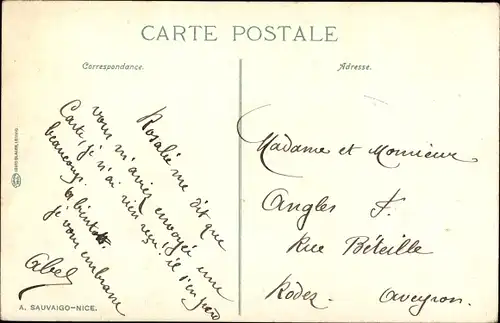 CARTE POSTALE
Correspondance.
Adresse.
Rosalie me dit que
vous m'aviez envoyée une
Carte, je n'ai rien reçu, il s'en perd
beaucoup.
a bientot.
je vous embrasse
Abel
Madame et Monsieur
Angles F.
Rue Béteille
Rodez Aveyron.
A. SAUVAIGO-NICE.